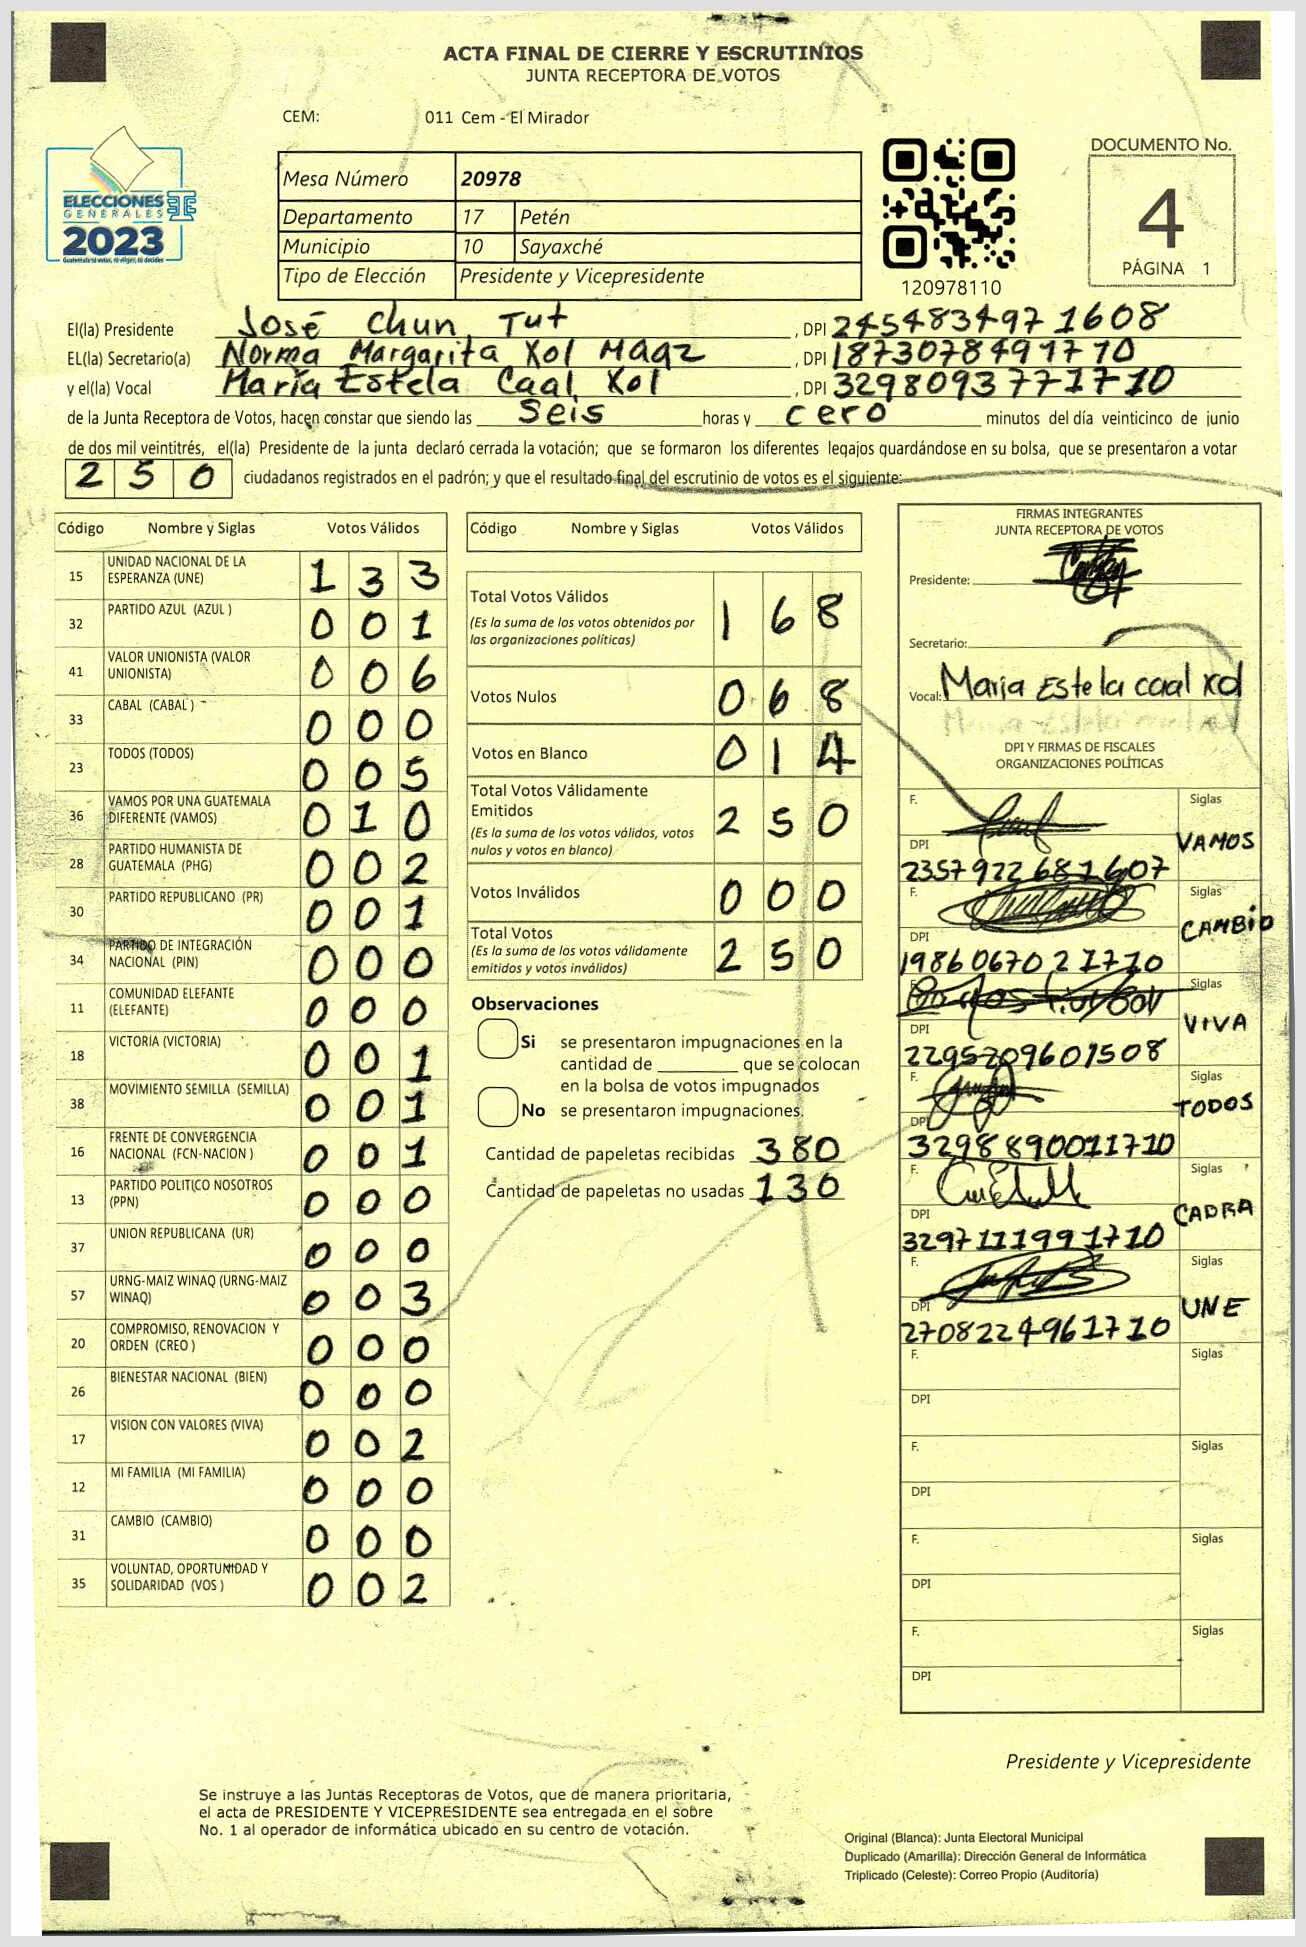 ACTA FINAL DE CIERRE Y ESCRUTINIOS
JUNTA RECEPTORA DE VOTOS
CEM: 011 Cem - El Mirador
ELECCIONES
GENERALES
2023
Mesa Número 20978
Departamento 17 Petén
Municipio 10 Sayaxché
Tipo de Elección Presidente y Vicepresidente
120978110
DOCUMENTO No.
4
PÁGINA 1
El(la) Presidente José Chun Tut , DPI 245483497 1608
EL(la) Secretario(a) Norma Margarita Xol Maaz , DPI 1873078491710
y el(la) Vocal María Estela Caal Xol , DPI 3298093771710
de la Junta Receptora de Votos, hacen constar que siendo las seis horas y cero minutos del día veinticinco de junio
de dos mil veintitrés, el(la) Presidente de la junta declaró cerrada la votación; que se formaron los diferentes legajos guardándose en su bolsa, que se presentaron a votar
250 ciudadanos registrados en el padrón; y que el resultado final del escrutinio de votos es el siguiente:
Código Nombre y Siglas Votos Válidos
15 UNIDAD NACIONAL DE LA ESPERANZA (UNE) 1 3 3
32 PARTIDO AZUL (AZUL ) 0 0 1
41 VALOR UNIONISTA (VALOR UNIONISTA) 0 0 6
33 CABAL (CABAL ) 0 0 0
23 TODOS (TODOS) 0 0 5
36 VAMOS POR UNA GUATEMALA DIFERENTE (VAMOS) 0 1 0
28 PARTIDO HUMANISTA DE GUATEMALA (PHG) 0 0 2
30 PARTIDO REPUBLICANO (PR) 0 0 1
34 PARTIDO DE INTEGRACIÓN NACIONAL (PIN) 0 0 0
11 COMUNIDAD ELEFANTE (ELEFANTE) 0 0 0
18 VICTORIA (VICTORIA) 0 0 1
38 MOVIMIENTO SEMILLA (SEMILLA) 0 0 1
16 FRENTE DE CONVERGENCIA NACIONAL (FCN-NACION ) 0 0 1
13 PARTIDO POLITICO NOSOTROS (PPN) 0 0 0
37 UNION REPUBLICANA (UR) 0 0 0
57 URNG-MAIZ WINAQ (URNG-MAIZ WINAQ) 0 0 3
20 COMPROMISO, RENOVACION Y ORDEN (CREO ) 0 0 0
26 BIENESTAR NACIONAL (BIEN) 0 0 0
17 VISION CON VALORES (VIVA) 0 0 2
12 MI FAMILIA (MI FAMILIA) 0 0 0
31 CAMBIO (CAMBIO) 0 0 0
35 VOLUNTAD, OPORTUNIDAD Y SOLIDARIDAD (VOS ) 0 0 2
Código Nombre y Siglas Votos Válidos
Total Votos Válidos 1 6 8
(Es la suma de los votos obtenidos por
las organizaciones políticas)
Votos Nulos 0 6 8
Votos en Blanco 0 1 4
Total Votos Válidamente
Emitidos 2 5 0
(Es la suma de los votos válidos, votos
nulos y votos en blanco)
Votos Inválidos 0 0 0
Total Votos 2 5 0
(Es la suma de los votos válidamente
emitidos y votos inválidos)
Observaciones
Si se presentaron impugnaciones en la
cantidad de ________ que se colocan
en la bolsa de votos impugnados
No se presentaron impugnaciones.
Cantidad de papeletas recibidas 380
Cantidad de papeletas no usadas 130
FIRMAS INTEGRANTES
JUNTA RECEPTORA DE VOTOS
Presidente:
Secretario:
Vocal: Maria Estela caal xol
DPI Y FIRMAS DE FISCALES
ORGANIZACIONES POLÍTICAS
F. Siglas VAMOS
DPI 2357922681607
F. Siglas CAMBIO
DPI 1986067021710
Siglas VIVA
DPI 2295209601508
F. Siglas TODOS
DPI 3298890011710
F. Siglas CADRA
DPI 3297111991710
F. Siglas UNE
DPI 2708224961710
F. Siglas
DPI
F. Siglas
DPI
F. Siglas
DPI
F. Siglas
DPI
Presidente y Vicepresidente
Se instruye a las Juntas Receptoras de Votos, que de manera prioritaria,
el acta de PRESIDENTE Y VICEPRESIDENTE sea entregada en el sobre
No. 1 al operador de informática ubicado en su centro de votación.
Original (Blanca): Junta Electoral Municipal
Duplicado (Amarilla): Dirección General de Informática
Triplicado (Celeste): Correo Propio (Auditoría)